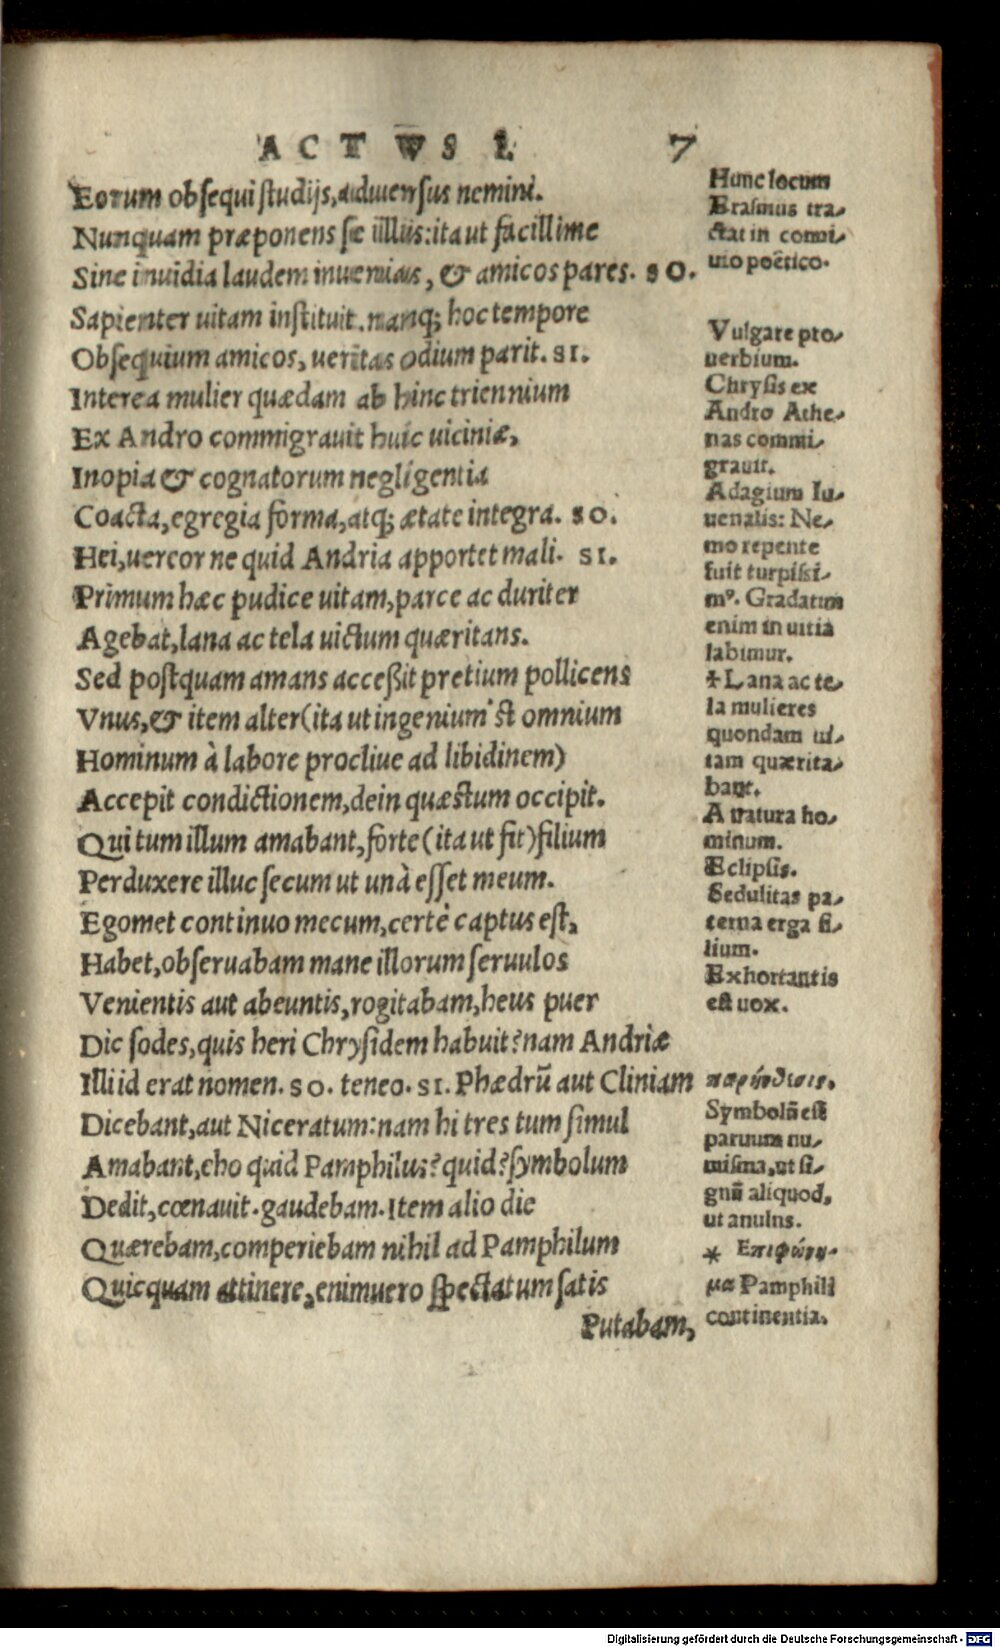 ACTVVS I. 7
Eorum obsequi studijs, aduersus nemini.
Nunquam præponens se illis: ita ut facillime
Sine inuidia laudem inuenias, & amicos pares. SO.
Sapienter uitam instituit. nanq; hoc tempore
Obsequium amicos, ueritas odium parit. SI.
Interea mulier quædam ab hinc triennium
Ex Andro commigrauit huic uiciniæ,
Inopia & cognatorum negligentia
Coacta, egregia forma, atq; ætate integra. SO.
Hei, uereor ne quid Andria apportet mali. SI.
Primum hæc pudice uitam, parce ac duriter
Agebat, lana ac tela uictum quæritans.
Sed postquam amans acceßit pretium pollicens
Vnus, & item alter (ita ut ingenium 'st omnium
Hominum à labore procliue ad libidinem)
Accepit condictionem, dein quæstum occipit.
Qui tum illum amabant, forte (ita ut fit) filium
Perduxere illuc secum ut unà esset meum.
Egomet continuo mecum, certè captus est,
Habet, obseruabam mane illorum seruulos
Venientis aut abeuntis, rogitabam, heus puer
Dic sodes, quis heri Chrysidem habuit? nam Andriæ
Illi id erat nomen. SO. teneo. SI. Phædrũ aut Cliniam
Dicebant, aut Niceratum: nam hi tres tum simul
Amabant, eho quid Pamphilus? quid? symbolum
Dedit, cœnauit. gaudebam. Item alio die
Quærebam, comperiebam nihil ad Pamphilum
Quicquam attinere, enimuero spectatum satis
Putabam,
Hunc locum
Erasmus tra-
ctat in conui-
uio poëtico.
Vulgare pro-
uerbium.
Chrysis ex
Andro Athe-
nas commi-
grauit.
Adagium Iu-
uenalis: Ne-
mo repente
fuit turpissi-
mꝰ. Gradatim
enim in uitia
labimur.
+ Lana ac te-
la mulieres
quondam ui-
tam quærita-
bant.
A natura ho-
minum.
Eclipsis.
Sedulitas pa-
terna erga fi-
lium.
Exhortantis
est uox.
παρένθεσις.
Symbolũ est
paruum nu-
misma, ut si-
gnũ aliquod,
ut anulus.
* Επιφώνη-
μα Pamphili
continentia.
Digitalisierung gefördert durch die Deutsche Forschungsgemeinschaft - DFG